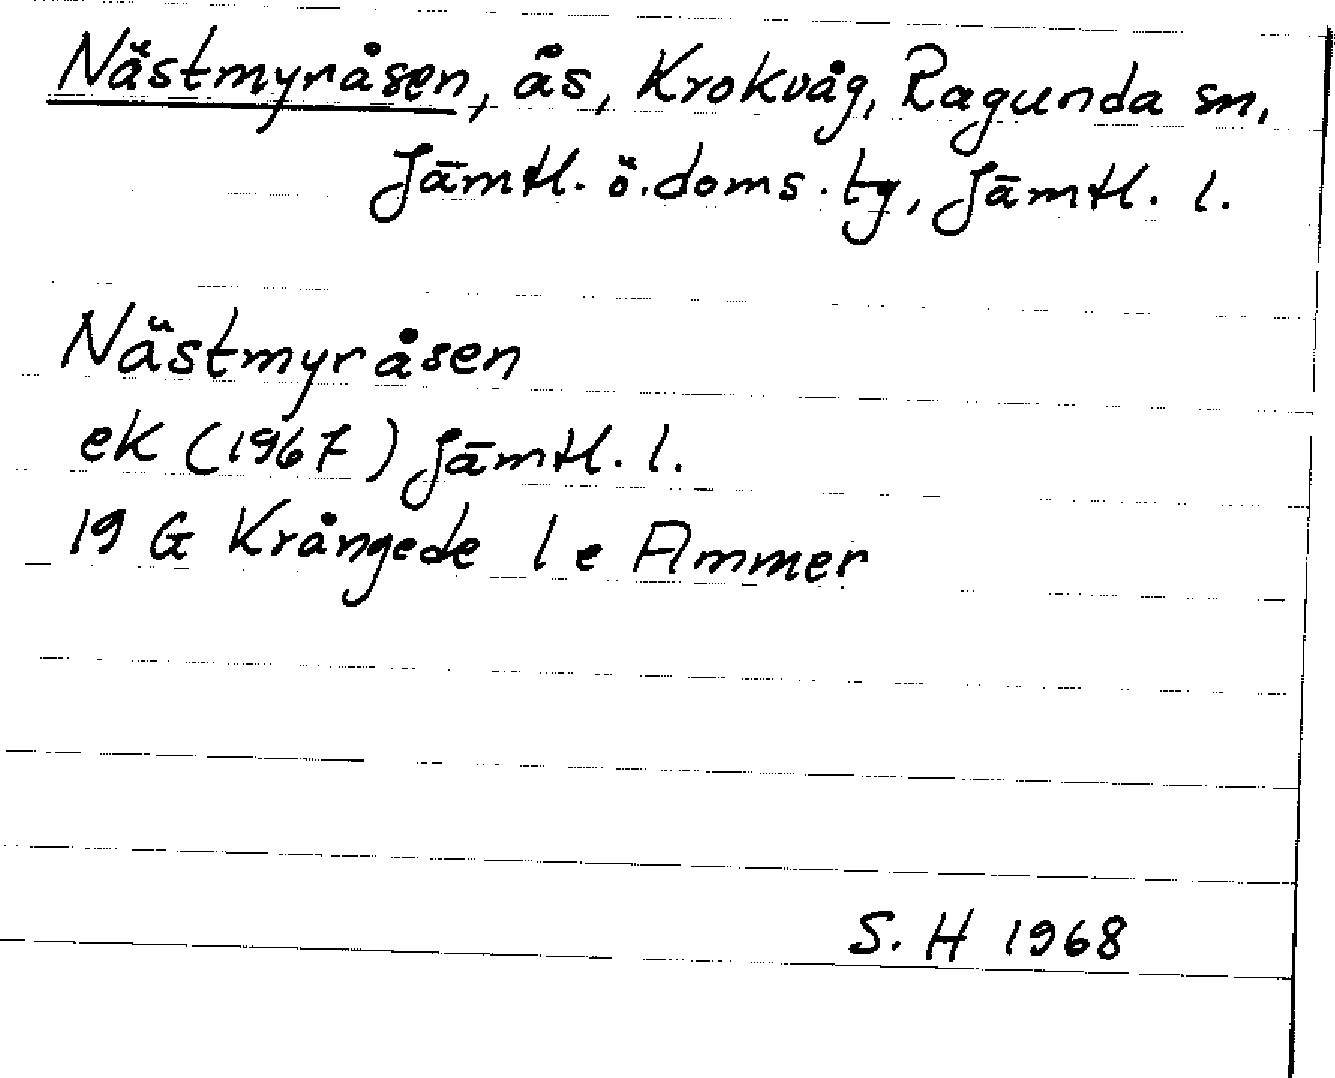 Nästmyråsen, ås, Krokvåg, Ragunda sn,
Jämtl. ö. doms. tg, Jämtl. l.
Nästmyråsen
ek (1967) Jämtl. l.
19 G Krångede l e Ammer
S. H 1968